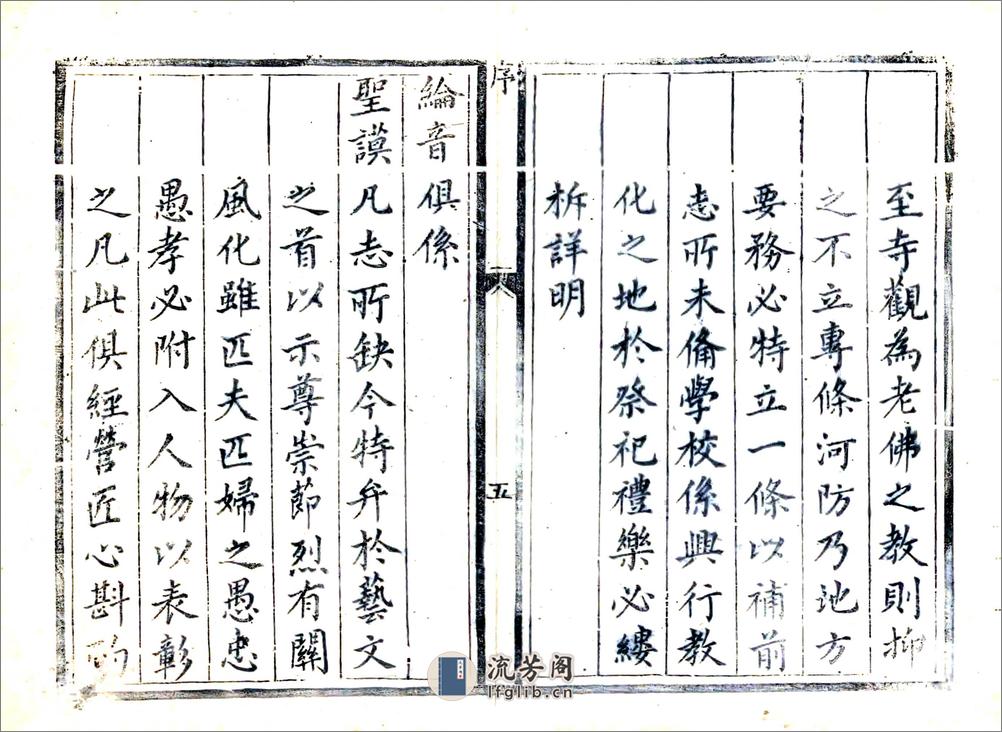 至寺觀為老佛之教則抑
之不立專條河防乃地方
要務必特立一條以補前
志所未備學校係興行教
化之地於祭祀禮樂必縷
析詳明
序
五
綸音俱係
聖謨凡志所缺今特弁於藝文
之首以示尊崇節烈有關
風化雖匹夫匹婦之愚忠
愚孝必附入人物以表彰
之凡此俱經營匠心斟酌
流芳阁
lfglib.cn